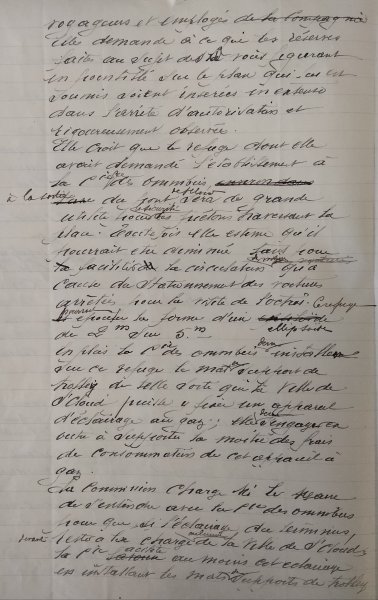 voyageurs et employés de la Compagnie
Elle demande à ce que les réserves
faites au sujet des voies figurant
en pointillé sur le plan qui a été
soumis soient insérées in extenso
dans l'arrêté d'autorisation et
rigoureusement observée.
Elle croit que le refuge dont elle
avait demandé l'établissement à
la Cie des omnibus
à la sortie du pont sera de grande
utilité pour les piétons traversant la
place. Toutefois elle estime qu'il
pourrait être diminué pour
la faciliter la circulation qui à
cause du stationnement des voitures
arrêtées pour la visite de l'octroi. Ce refuge
pourrait épouser la forme d'un
ellipsoïde
de 2 m sur 5 m
en plus la Cie des omnibus devra installer
sur ce refuge le mat support de
trolley de telle sorte que la Ville de
St Cloud puisse y fixer un appareil
d'éclairage au gaz; elle devra s'engager en
outre à supporter la moitié des frais
de consommation de cet appareil à
gaz.
La Commission charge M. le Maire
de s'entendre avec la Cie des omnibus
pour que si l'éclairage du terminus
reste à la charge de la Ville de St Cloud,
la Cie facilite au moins cet éclairage
en installant les mats supports de trolley